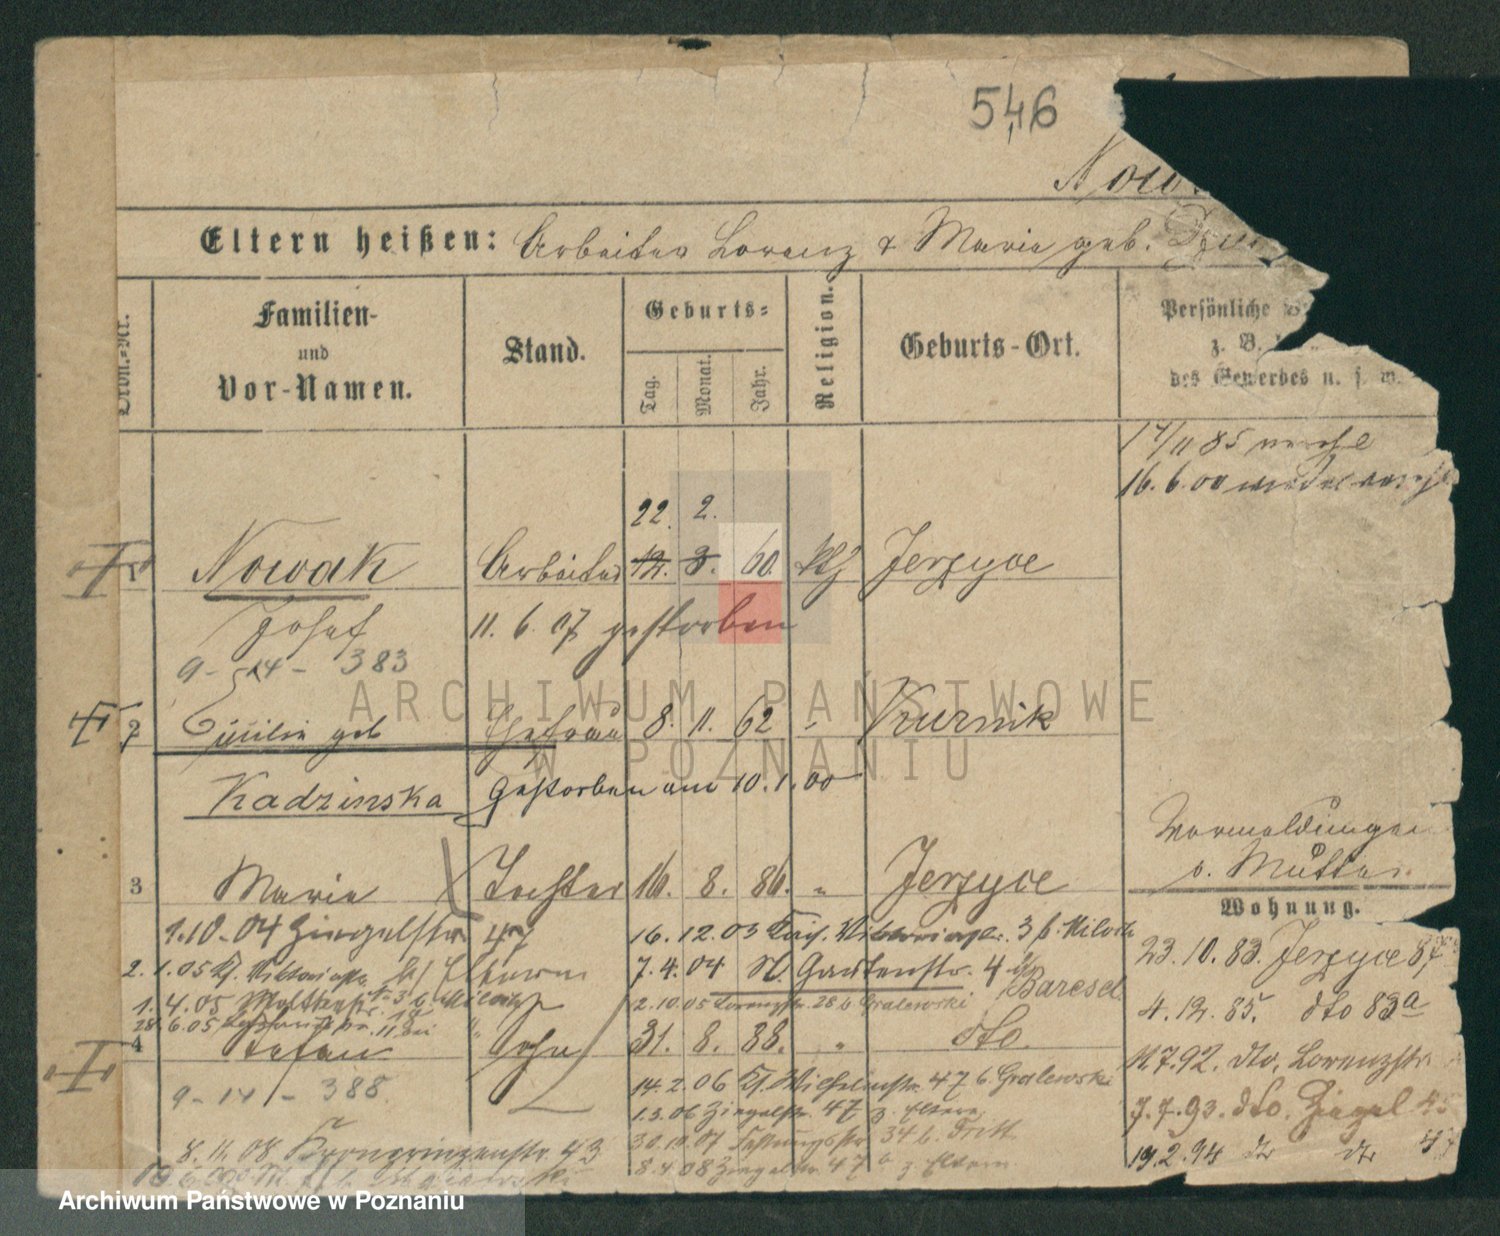 546
Eltern heißen: Arbeiter Lorenz & Marie geb.
Familien-
und
Vor-Namen.
Stand.
Geburts=
Tag.
Monat.
Jahr.
Religion.
Geburts-Ort.
Persönliche
z. B.
des Gewerbes u. s. w.
17/11 85
16. 6. 00
22. 2.
1 Nowak Arbeiter 12. 3. 60. kth Jerzyce
Josef 11. 6. 07 gestorben
9-14- 383
2 Cäcilie geb Ehefrau 8. 11. 62 " Kurnik
Kadzinska Gestorben am 10. 1. 00
Vormeldungen
s. Mutter.
3 Marie Tochter 16. 8. 86. " Jerzyce
Wohnung.
1.10.04 Ziegelstr. 47
16. 12. 03 3 b.
23. 10. 83. Jerzyce 87
2. 1. 05 Kl.
7. 4. 04 Kl. Gartenstr. 4 b/ Baresel.
1. 4. 05
2. 10. 05 Lorenzstr. 28 b Gralewski
4. 12. 85. dto 83a
28. 6. 05
4 Stefan Sohn 31. 8. 88. " dto.
9-14- 388
14. 2. 06 Kl. Wilhelmstr. 47 b Gralewski
7. 92. dto. Lorenzstr
1. 3. 06 Ziegelstr. 47 z. Eltern
7. 7. 93. dto. Ziegel 45
8. 11. 08 Kronprinzenstr. 43
30. 10. 07 Festungsstr 34 b. Fritt
8. 4. 08 Ziegelstr. 47 z. Eltern
19. 2. 94 dto dto 47
ARCHIWUM PAŃSTWOWE
W POZNANIU
Archiwum Państwowe w Poznaniu